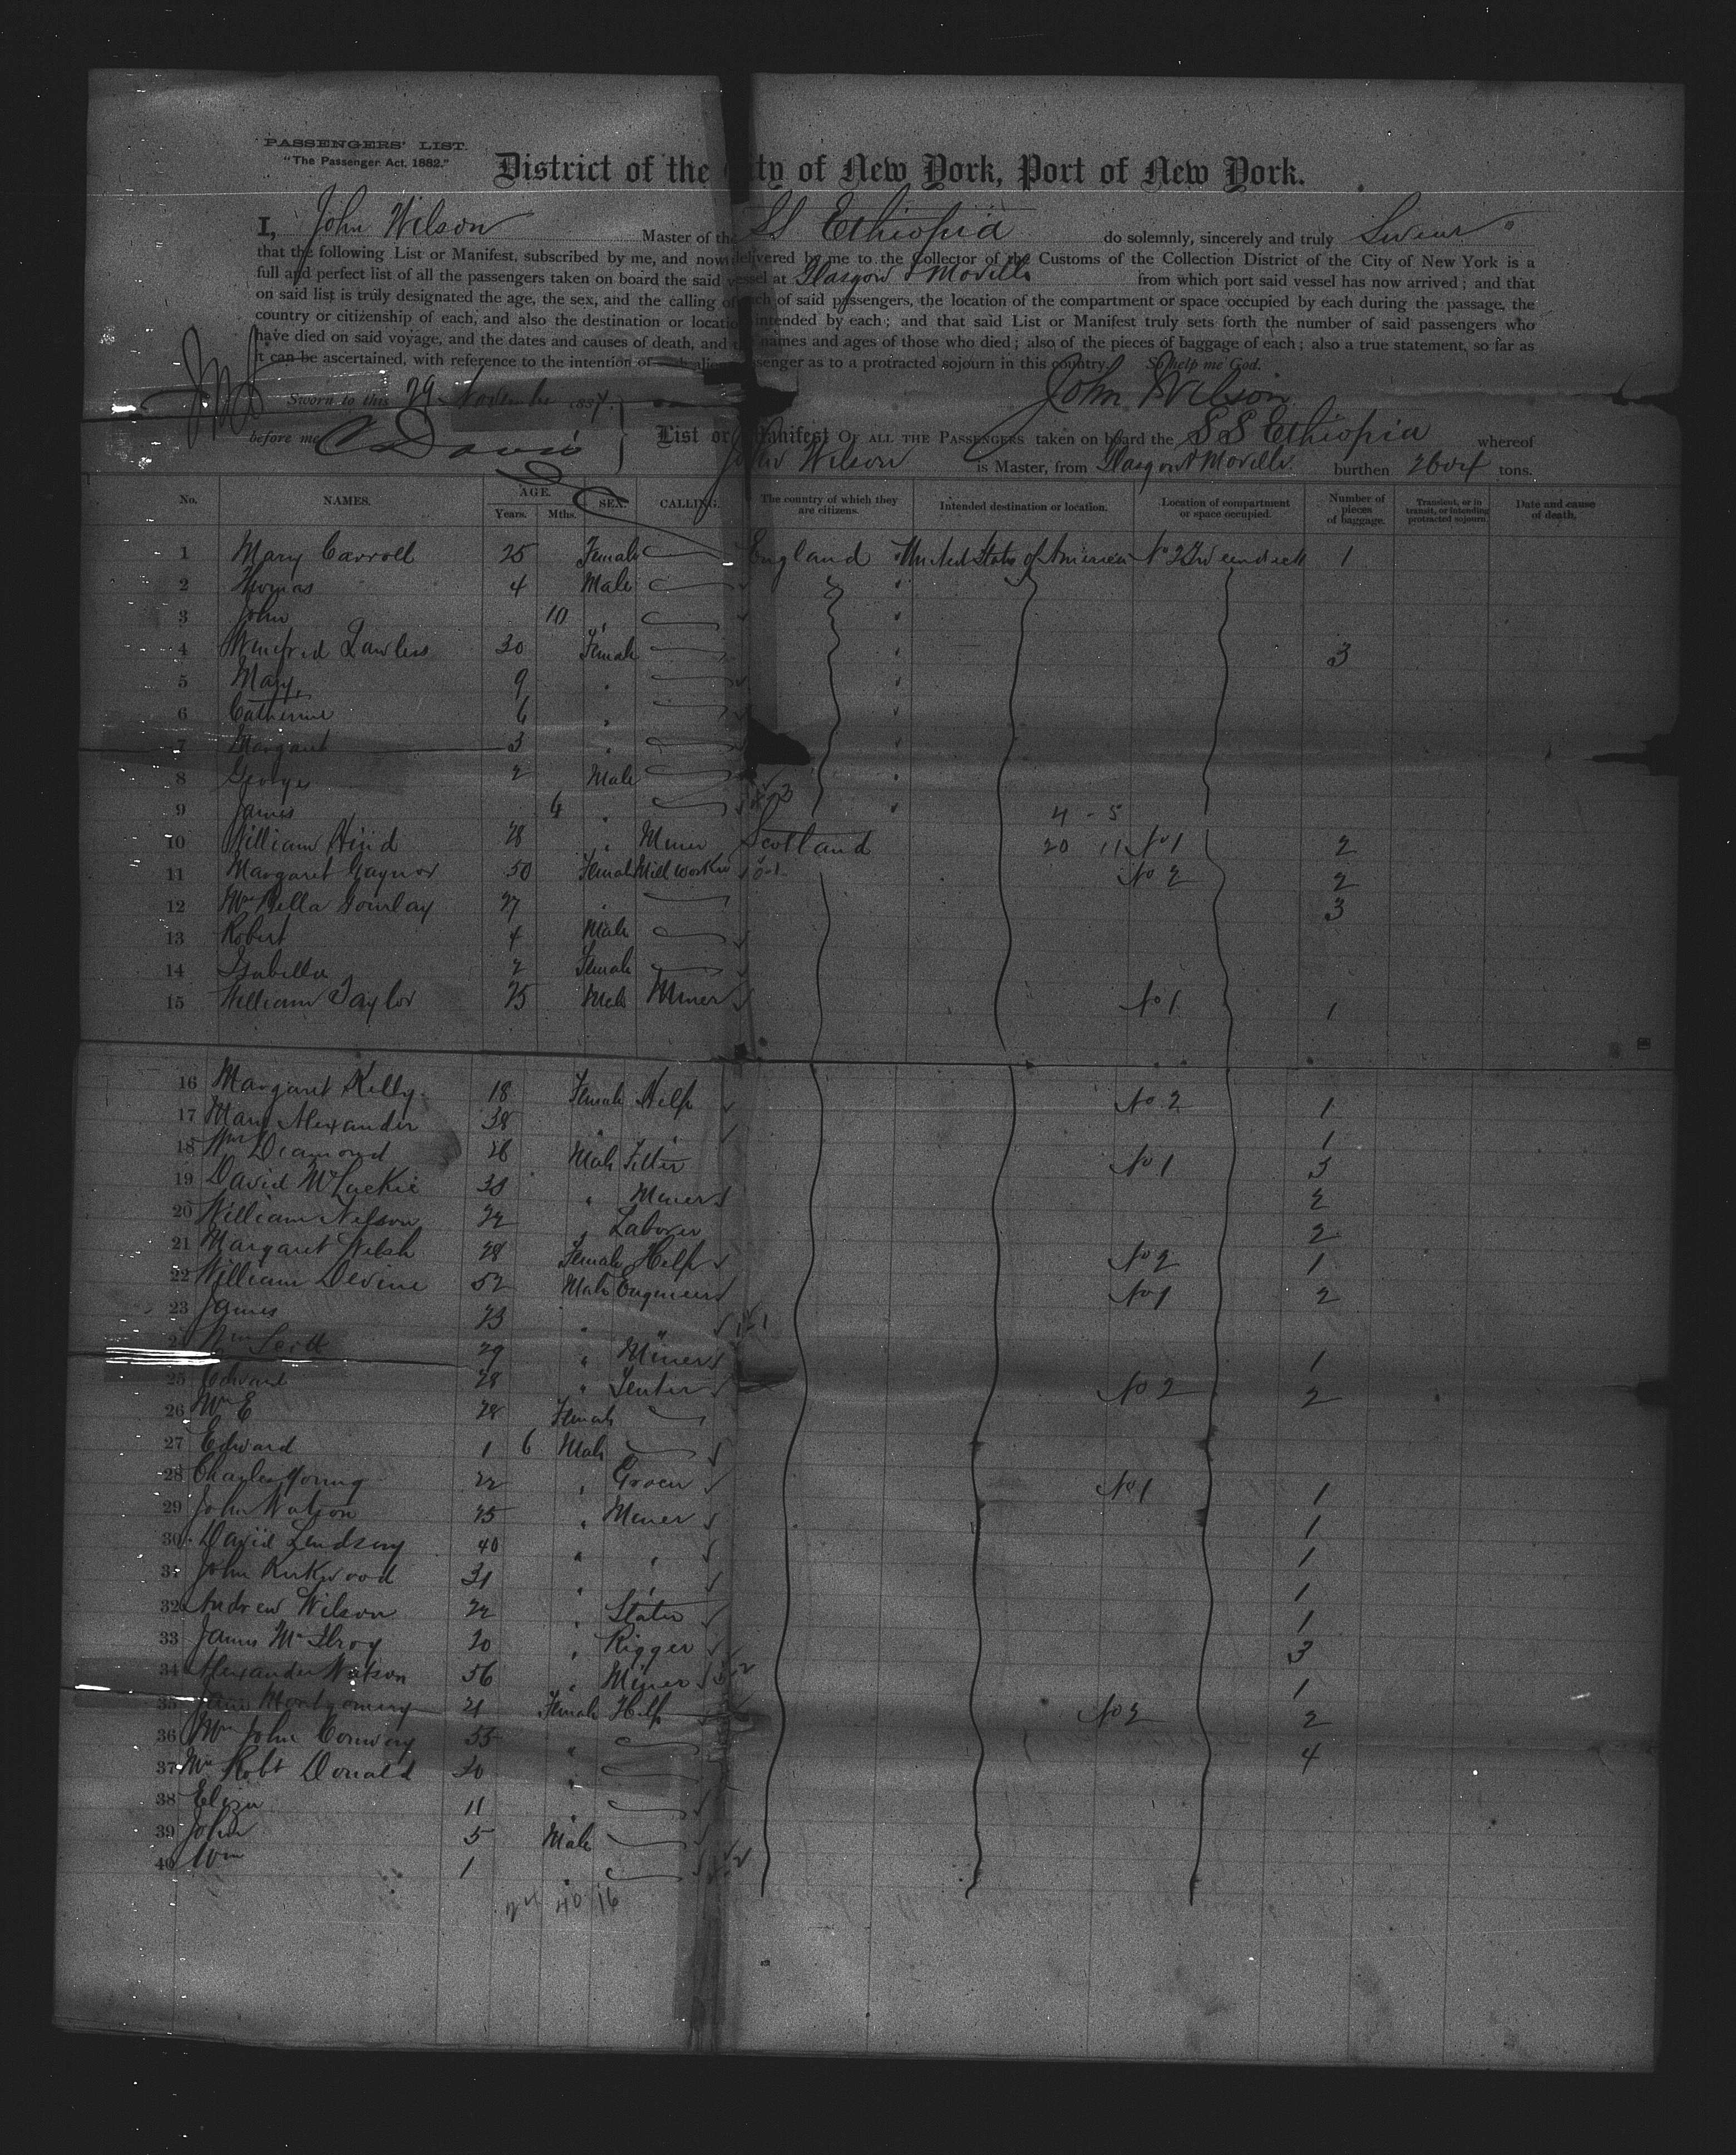 PASSENGERS' LIST.
"The Passenger Act, 1882."
District of the City of New York, Port of New York.
I, John Wilson Master of the SS Ethiopia do solemnly, sincerely and truly Swear
that the following List or Manifest, subscribed by me, and now delivered by me to the Collector of the Customs of the Collection District of the City of New York is a
full and perfect list of all the passengers taken on board the said vessel at Glasgow & Moville from which port said vessel has now arrived; and that
on said list is truly designated the age, the sex, and the calling of each of said passengers, the location of the compartment or space occupied by each during the passage, the
country or citizenship of each, and also the destination or location intended by each; and that said List or Manifest truly sets forth the number of said passengers who
have died on said voyage, and the dates and causes of death, and the names and ages of those who died; also of the pieces of baggage of each; also a true statement, so far as
it can be ascertained, with reference to the intention of each alien passenger as to a protracted sojourn in this country. So help me God.
John Wilson
Sworn to this 29 November 1887.
before me
List or Manifest OF ALL THE PASSENGERS taken on board the SS Ethiopia whereof
John Wilson is Master, from Glasgow & Moville burthen tons.
No. NAMES. AGE. Years. Mths. SEX. CALLING. The country of which they are citizens. Intended destination or location. Location of compartment or space occupied. Number of pieces of baggage. Transient, or in transit, or intending protracted sojourn. Date and cause of death.
1 Mary Carroll 25 Female England United States of America No 2 Tweendeck 1
2 Thomas 4 Male
3 John 10 "
4 Winifred Lawless 30 Female 3
5 Mary 9 "
6 Catherine 6 "
7 Margaret 3 "
8 George 2 Male
9 James 4 "
4 - 5
10 William Hind 28 " Miner Scotland 20 11 No 1 2
11 Margaret Gaynor 50 Female Mill Worker No 2 2
12 Mrs Bella Gourlay 27 " 3
13 Robert 4 Male
14 Isabella 2 Female
15 William Taylor 25 Male Miner No 1 1
16 Margaret Kelly 18 Female Help No 2 1
17 Mary Alexander 38 " " 1
18 Wm Diamond 26 Male Fitter No 1 3
19 David McLuckie 38 " Miner 2
20 William Nelson 22 " Laborer 2
21 Margaret Welsh 28 Female Help No 2 1
22 William Devine 52 Male Engineer No 1 2
23 James 23 " "
24 Wm Scott 29 " Miner 1
25 Edward 28 " No 2 2
26 Mrs E 28 Female
27 Edward 1 6 Male
28 Charles Young 22 " Grocer No 1 1
29 John Watson 25 " Miner 1
30 David Lindsay 40 " " 1
31 John Kirkwood 31 " " 1
32 Andrew Wilson 22 " Slater 1
33 James McIlroy 20 " Rigger 3
34 Alexander Watson 56 " Miner 1
35 Jane Montgomery 21 Female Help No 2 2
36 Mrs John Conway 55 " 4
37 Mrs Robt Donald 30 "
38 Eliza 11 "
39 John 5 Male
40 Wm 1 "
40 16